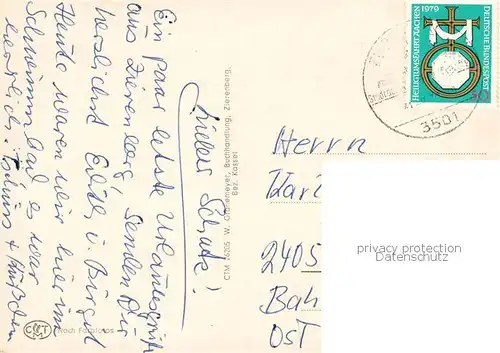 Lieber Schatz!
Ein paar letzte Urlaubsgrüße
aus Zierenberg, senden Dir
herzlichst Edith u. Birgit
Heute waren wir hier im
Schwimmbad es war
herrlich. Tschüss +
CTM 26205 W. Grönemeyer, Buchhandlung, Zierenberg,
Bez. Kassel
Nach Farbfotos
HEILIGTUMSFAHRT AACHEN 1979
DEUTSCHE BUNDESPOST
50
3501
Herrn
2405
Bah
Ost
privacy protection
Datenschutz